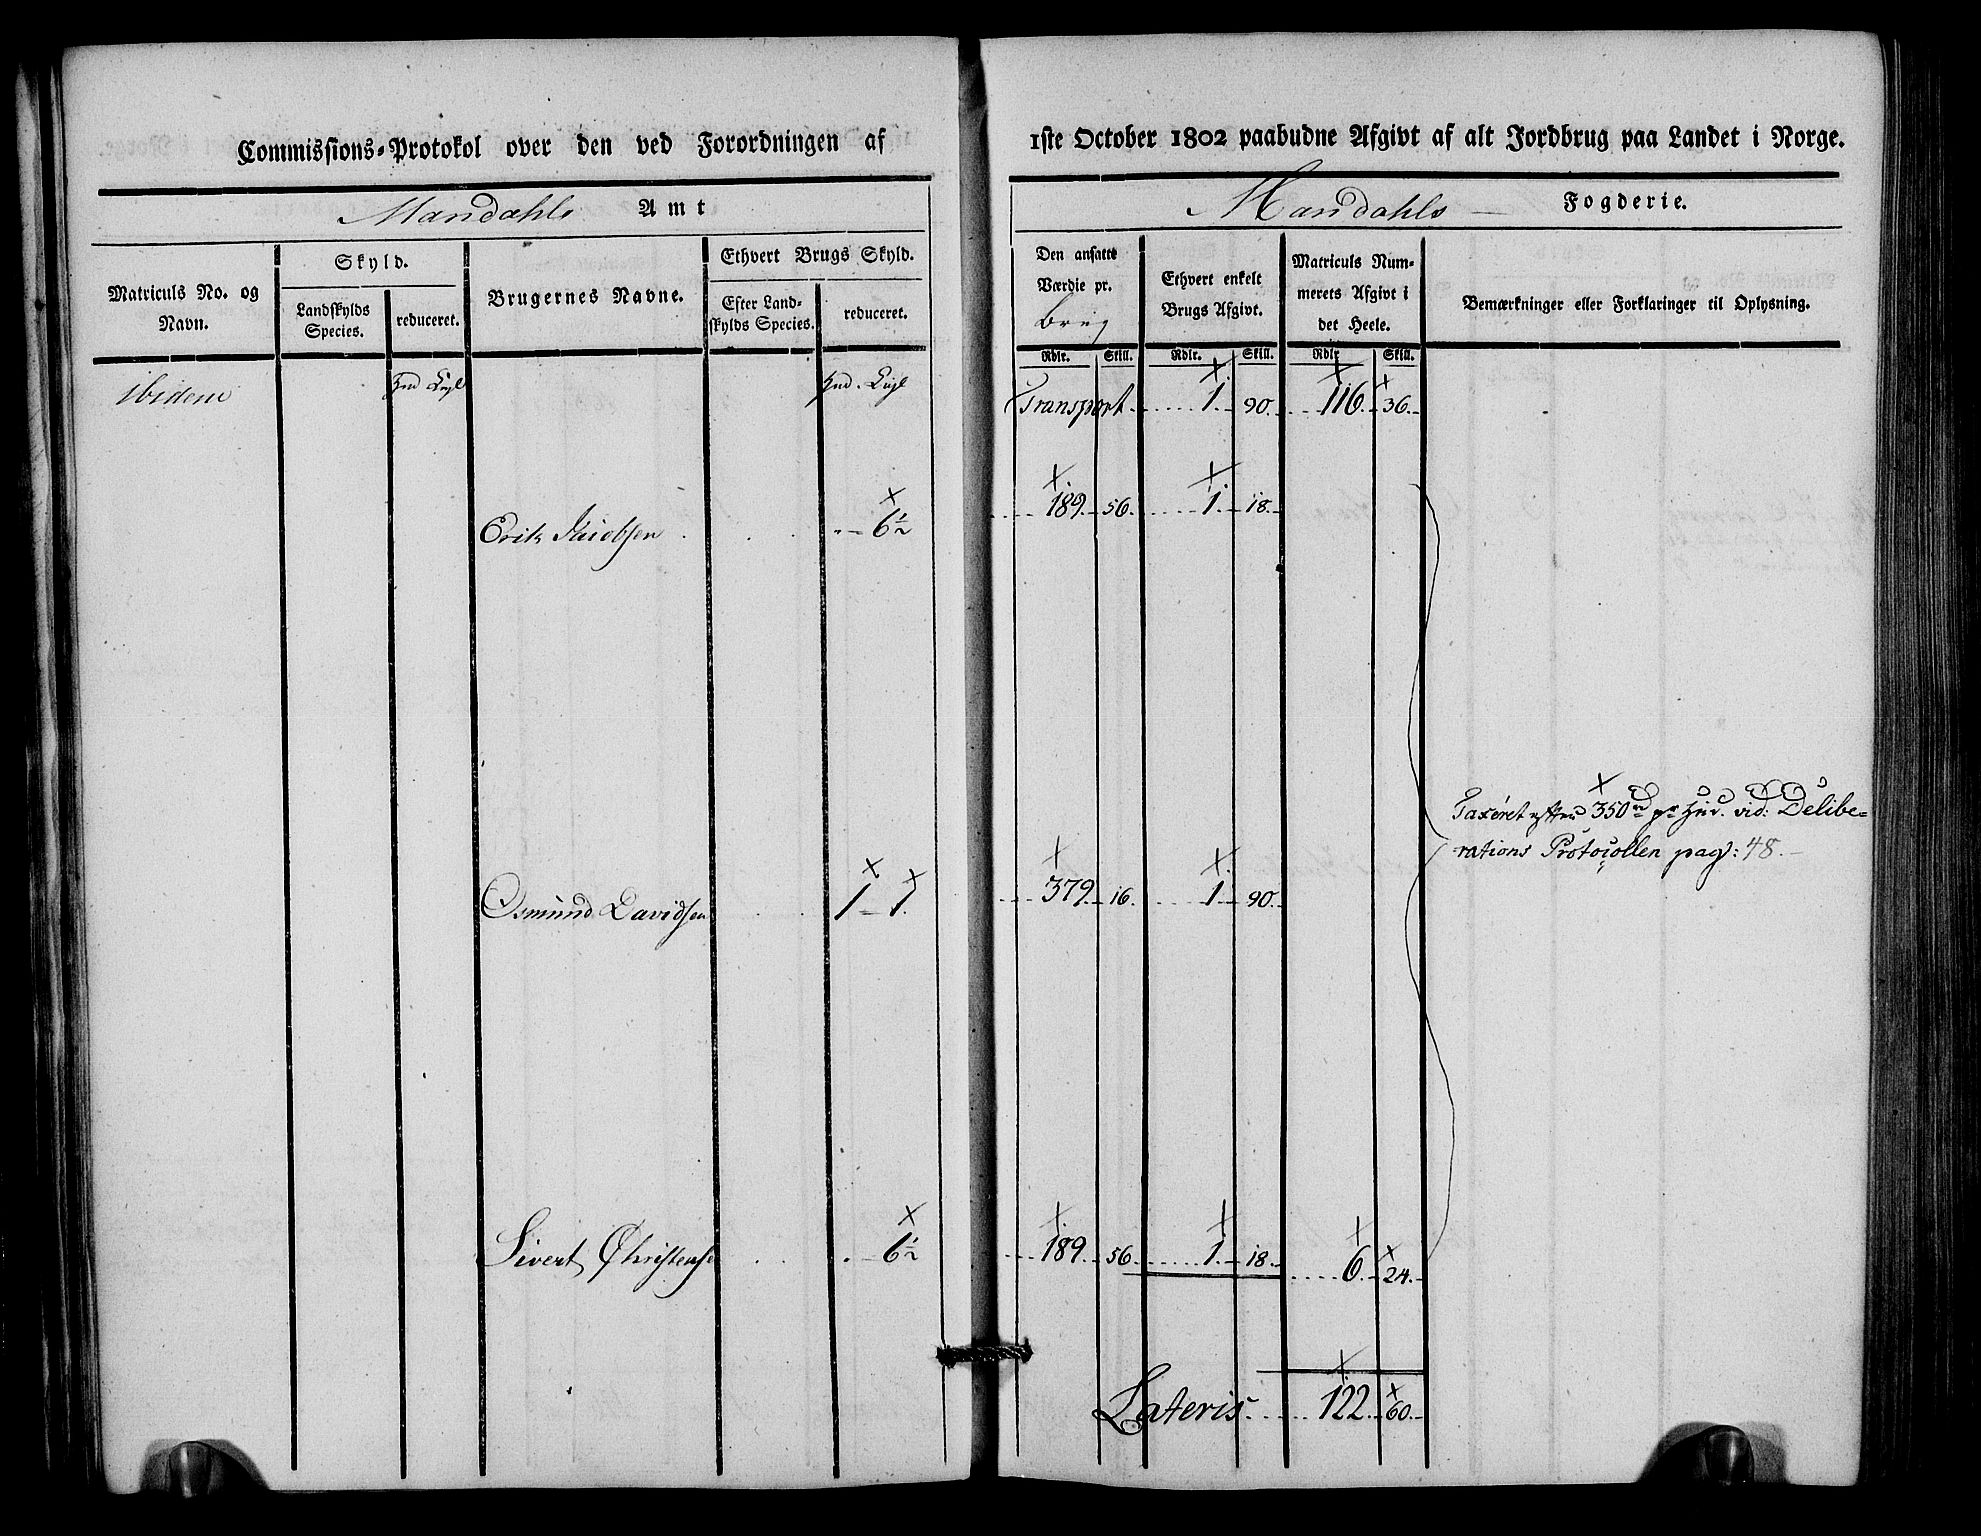 Commissions-Protokol over den ved Forordningen af
1ste October 1802 paabudne Afgivt af alt Jordbrug paa Landet i Norge.
Mandahls Amt
Mandahls Fogderie.
Matriculs No. og Navn.
Skyld.
Landskylds Species.
reduceret.
Brugernes Navne.
Ethvert Brugs Skyld.
Efter Landskylds Species.
reduceret.
Den ansatte Værdie pr. brug
Ethvert enkelt Brugs Afgivt.
Matriculs Nummerets Afgivt i det Heele.
Bemærkninger eller Forklaringer til Oplysning.
Rdlr. Skill. Rdlr. Skill. Rdlr. Skill.
Ibidem
Transport 1 90 116 36
Erik 6½ 189 56 1 18
Taxeret efter 350 rd pr Hud. vid: Delibe=
rations Protocollen pag: 48.
Osmund Davidsen 1 - 1 379 16 1 90
Sivert Christense 6½ 189 56 1 18 6 24
Lateris 122 60